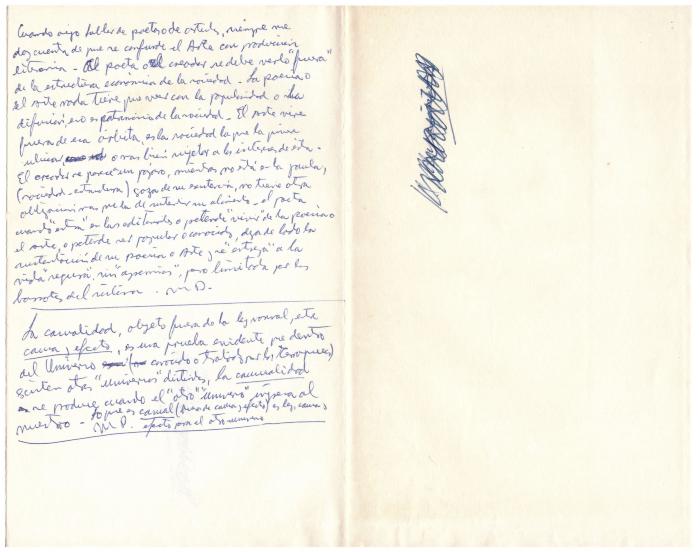 Cuando oigo hablar de poetas o de artistas, siempre me
doy cuenta de que se confunde el Arte con producción
literaria - Al poeta o al creador se debe verlo "fuera"
de la estructura económica de la sociedad - La poesía o
el arte nada tiene que ver con la popularidad o la
difusión, eso es patrimonio de la sociedad - El arte vive
fuera de esa órbita, es la sociedad la que la pone
o más bien sujetar a los intereses de ésta -
El creador se parece a un pájaro, mientras no está en la jaula,
(sociedad - estructura) goza de su existencia, no tiene otra
obligación más que la de sustentar su alimento - el poeta
cuando "entra" en las editoriales o pretende "vivir" de la poesía o
el arte, o pretende ser popular o conocido, deja de lado la
sustentación de su poesía o Arte y se "entrega" a la
vida "segura", sin "apremios", pero limitada por los
barrotes del sistema. M D.
La casualidad, objeto fuera de la ley normal, esta
causa y efecto, es una prueba evidente que dentro
del Universo conocido o tratado por los
existen otros "universos" distintos, la casualidad
se produce cuando el "otro" "universo" impera al
nuestro - Lo que es casual (fuera de causa y efecto) es ley, causa y
M D. efecto para el otro universo